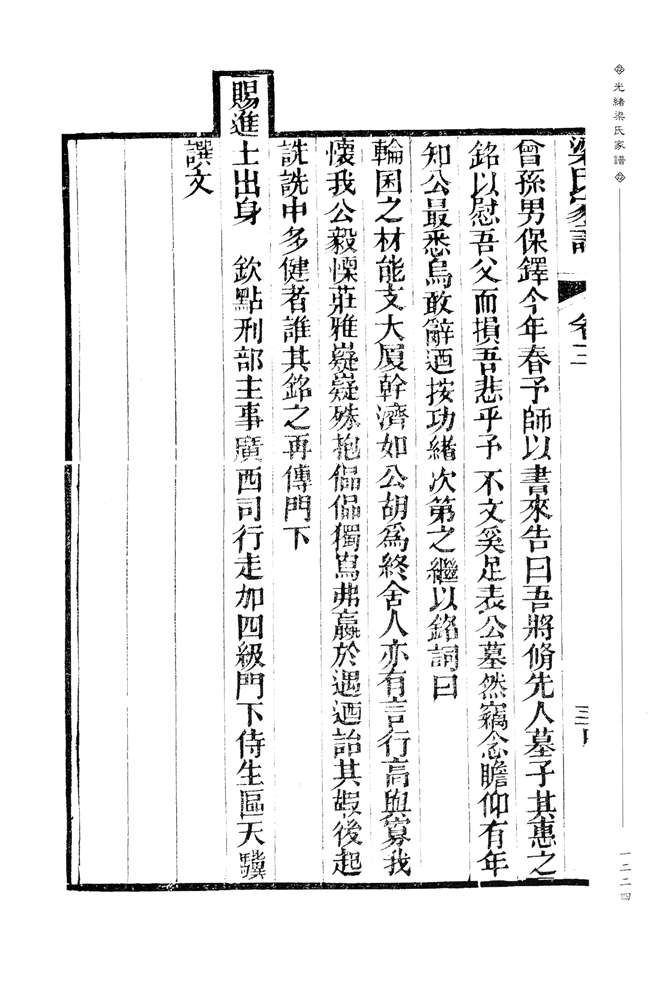 光緒梁氏家譜
一二二四
梁氏家譜 卷三
曾孫男保鐸今年春予師以書來告曰吾將脩先人墓子其惠之
銘以慰吾父而損吾悲乎予不文奚足表公墓然竊念瞻仰有年
知公最悉烏敢辭迺按功緒次第之繼以銘詞曰
輪囷之材能支大厦幹濟如公胡爲終舍人亦有言行高與寡我
懷我公毅慄莊雅嶷嶷殊抱偘偘獨寫弗贏於遇迺詒其嘏後起
詵詵中多健者誰其銘之再傳門下
賜進士出身 欽點刑部主事廣西司行走加四級門下侍生區天驥
譔文